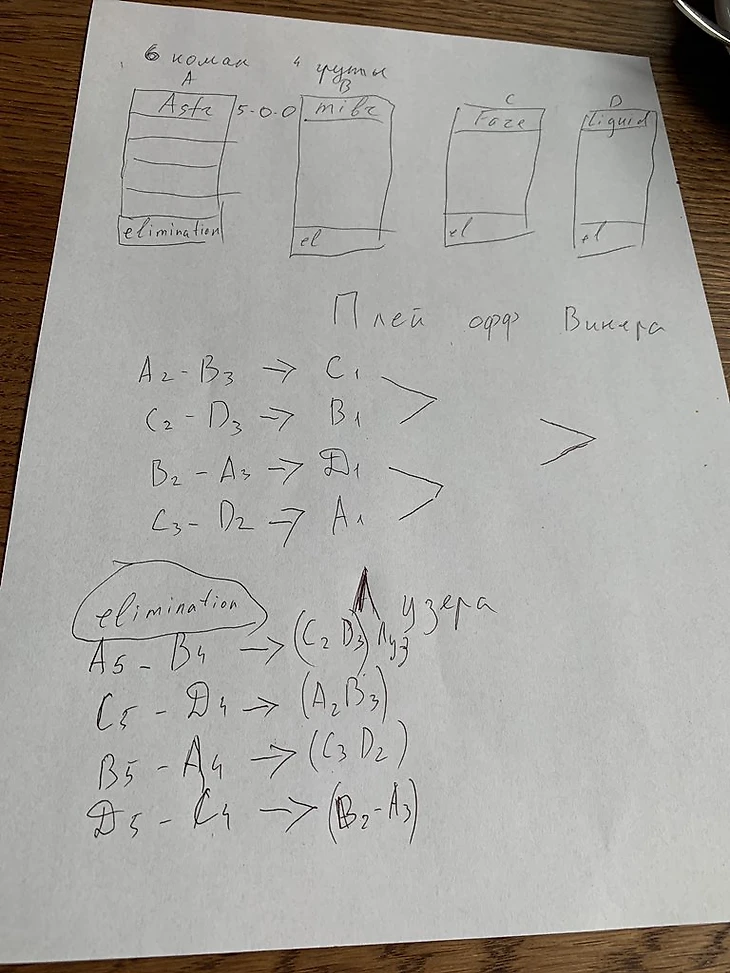 6 коман 4 групы
A B C D
Astr 5-0-0 mibr Faze liquid
elimination el el el
Плей офф Винера
A2 - B3 → C1
C2 - D3 → B1
B2 - A3 → D1
C3 - D2 → A1
Лузера
elimination
A5 - B4 → (C2 D3) Луз
C5 - D4 → (A2 B3)
B5 - A4 → (C3 D2)
D5 - C4 → (B2 - A3)